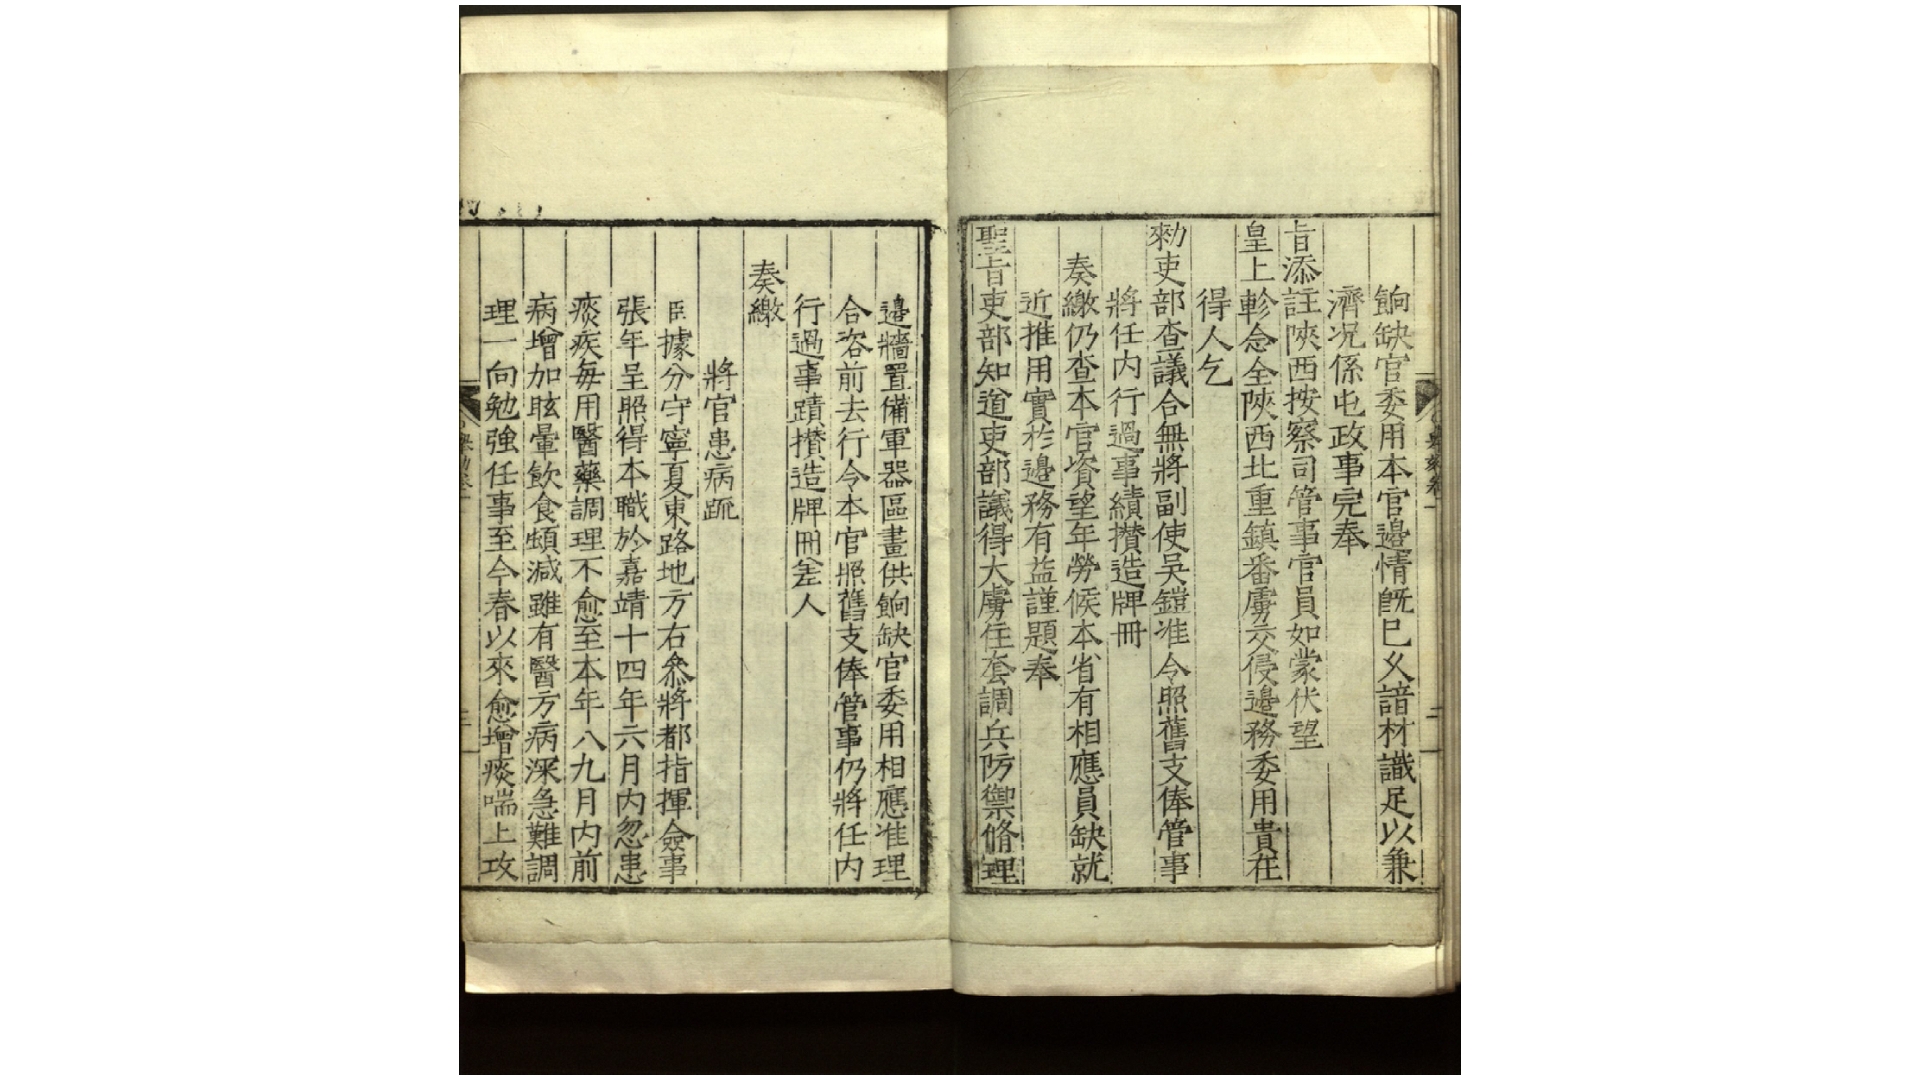 餉缺官委用本官邊情旣巳乆諳材識足以兼
濟况係屯政事完奉
旨添註陝西按察司管事官員如蒙伏望
皇上軫念全陝西北重鎮番虜交侵邊務委用貴在
得人乞
勑吏部查議合無將副使吳鎧准令照舊支俸管事
將任內行過事績攢造牌冊
奏繳仍查本官資望年勞候本省有相應員缺就
近推用實於邊務有益謹題奉
聖旨吏部知道吏部議得大虜住套調兵防禦脩理
邊牆置備軍器區畫供餉缺官委用相應准理
合咨前去行令本官照舊支俸管事仍將任內
行過事蹟攢造牌冊差人
奏繳
將官患病疏
臣據分守寧夏東路地方右叅將都指揮僉事
張年呈照得本職於嘉靖十四年六月內忽患
痰疾每用醫藥調理不愈至本年八九月內前
病增加眩暈飲食頓減雖有醫方病深急難調
理一向勉強任事至今春以來愈增痰喘上攻